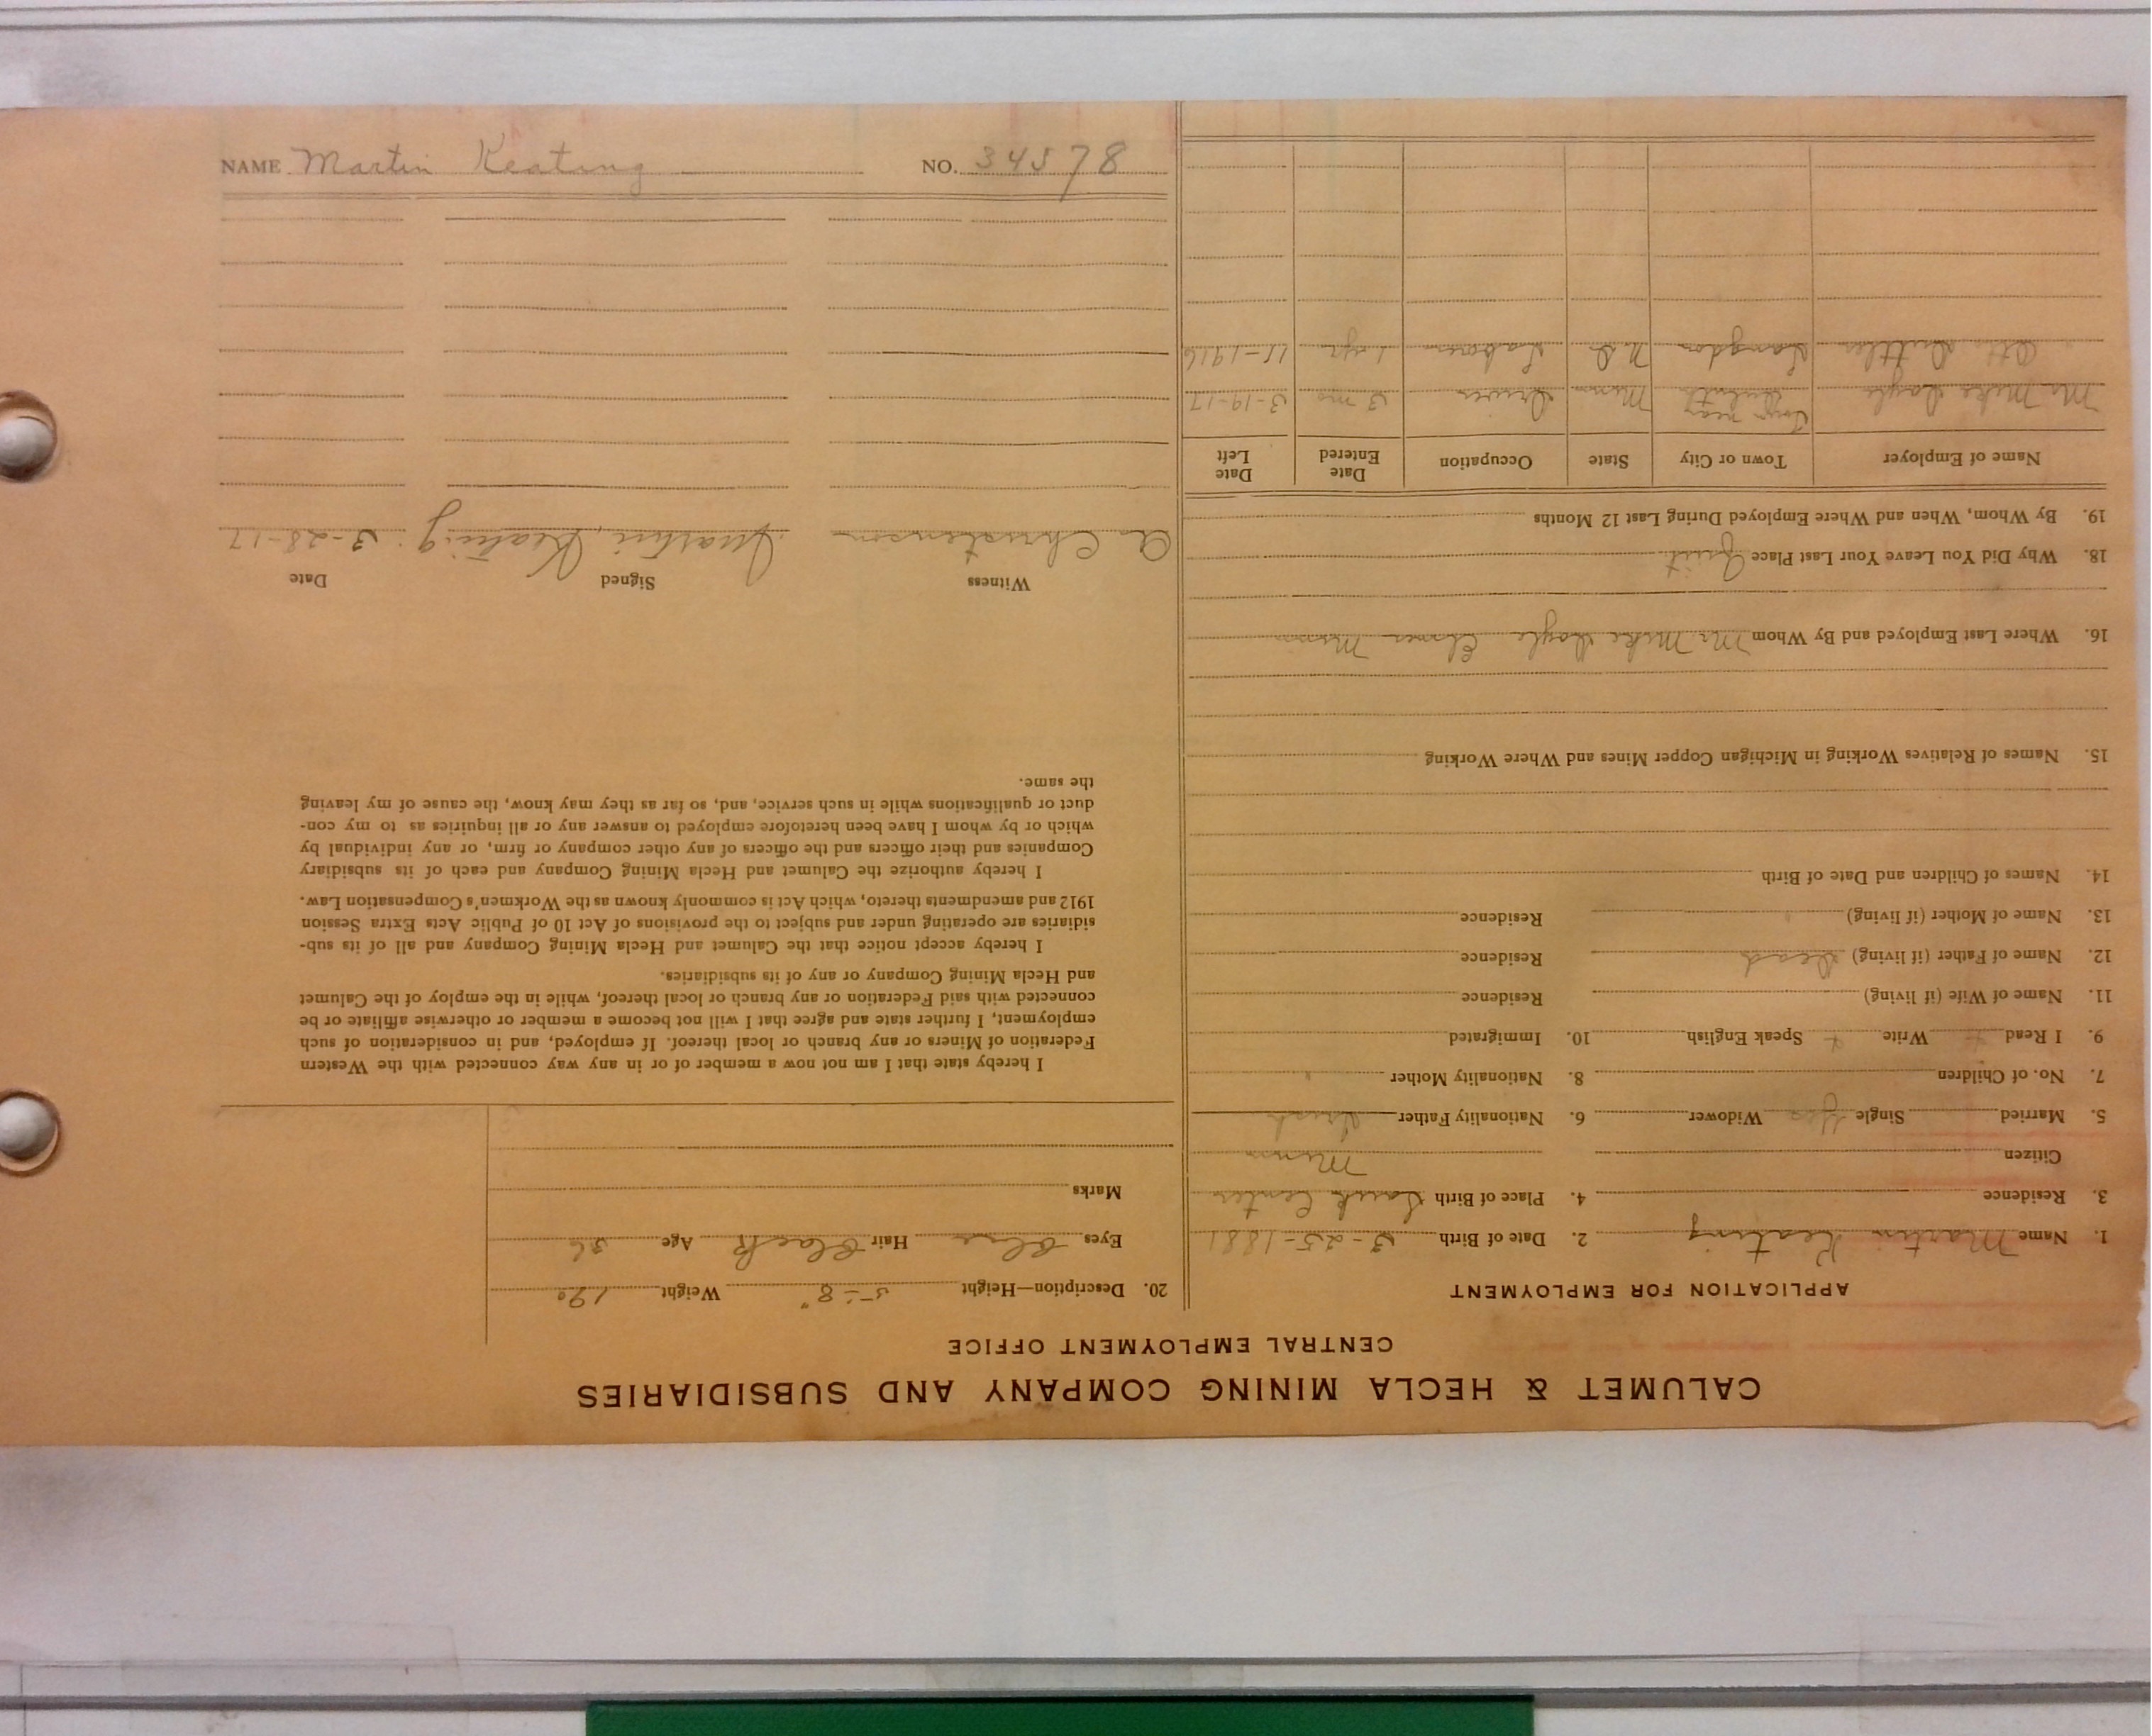 CALUMET & HECLA MINING COMPANY AND SUBSIDIARIES
CENTRAL EMPLOYMENT OFFICE
APPLICATION FOR EMPLOYMENT
1. Name Martin Keating 2. Date of Birth 3-25-1881
3. Residence 4. Place of Birth Sauk Center
Citizen Minn
5. Married Single Yes Widower 6. Nationality Father Irish
7. No. of Children 8. Nationality Mother
9. I Read + Write + Speak English 10. Immigrated
11. Name of Wife (if living) Residence
12. Name of Father (if living) Dead Residence
13. Name of Mother (if living) Residence
14. Names of Children and Date of Birth
15. Names of Relatives Working in Michigan Copper Mines and Where Working
16. Where Last Employed and By Whom Mr Mike Doyle Minn
18. Why Did You Leave Your Last Place Quit
19. By Whom, When and Where Employed During Last 12 Months
Name of Employer Town or City State Occupation Date Entered Date Left
Mr Mike Doyle near Duluth Minn Driver 3 mo 3-19-17
Otto Langdon N.D Laborer 1 yr 11-1916
20. Description—Height 5-8" Weight 190
Eyes Blue Hair Black Age 36
Marks
I hereby state that I am not now a member of or in any way connected with the Western
Federation of Miners or any branch or local thereof. If employed, and in consideration of such
employment, I further state and agree that I will not become a member or otherwise affiliate or be
connected with said Federation or any branch or local thereof, while in the employ of the Calumet
and Hecla Mining Company or any of its subsidiaries.
I hereby accept notice that the Calumet and Hecla Mining Company and all of its sub-
sidiaries are operating under and subject to the provisions of Act 10 of Public Acts Extra Session
1912 and amendments thereto, which Act is commonly known as the Workmen's Compensation Law.
I hereby authorize the Calumet and Hecla Mining Company and each of its subsidiary
Companies and their officers and the officers of any other company or firm, or any individual by
which or by whom I have been heretofore employed to answer any or all inquiries as to my con-
duct or qualifications while in such service, and, so far as they may know, the cause of my leaving
the same.
Witness Signed Date
A Christensen Martin Keating 3-28-17
NAME Martin Keating NO. 34578